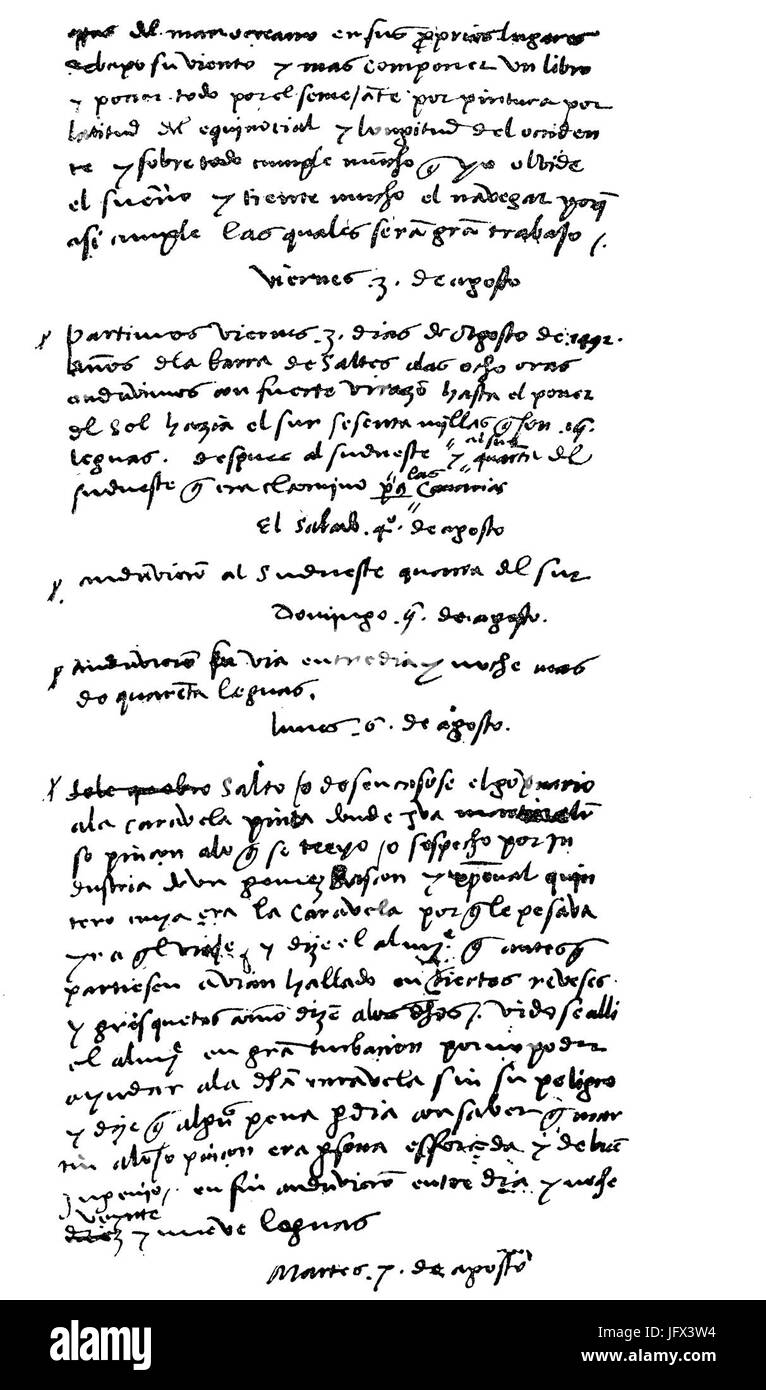 del mar occeano en sus proprios lugares
debaxo su viento y mas componer un libro
y poner todo por el semejãte por pintura por
latitud del equinocial y longitud del occiden
te y sobre todo cumple mucho q̃ yo olvide
el sueño y tiente mucho el navegar porq̃
asi cumple las quales serã grã trabajo /.
viernes .3. de agosto
partimos viernes .3. dias de agosto de .1492.
años dla barra de saltes alas ocho oras
anduvimos con fuerte virazõ hasta el poner
del sol hazia el sur sesenta millas q̃ son .15.
leguas. despues al sudueste y al sur quarta del
sudueste q̃ era el camino pa las Canarias
El sabado .4º. de agosto
anduvierõ al sudueste quarta del sur
Domingo .5. de agosto.
anduvierõ su via entre dia y noche mas
de quarẽta leguas.
lunes .6. de agosto.
salto /o desencasose el governario
ala caravela pinta donde yva martin alõ
so pinçon alo q̃ se creyo /o sospecho por in
dustria de un gomez Rascon y xp̃oval quin
tero cuya era la caravela por q̃ le pesava
yr aql viaje y dize el almie q̃ antes q̃
partiesen avian hallado en çiertos reveses
y grisquetas como dizẽ alos dhos /. vidose alli
el almie en grã turbacion por no poder
ayudar ala dha caravela sin su peligro
y dize q̃ algũa pena pdia con saber q̃ mar
tin alõso pinçon era psona esforçada y de buẽ
ingenio /. en fin anduvierõ entre dia y noche
veynte
y nueve leguas
Martes .7. de agosto
alamy
Image ID: JFX3W4
www.alamy.com